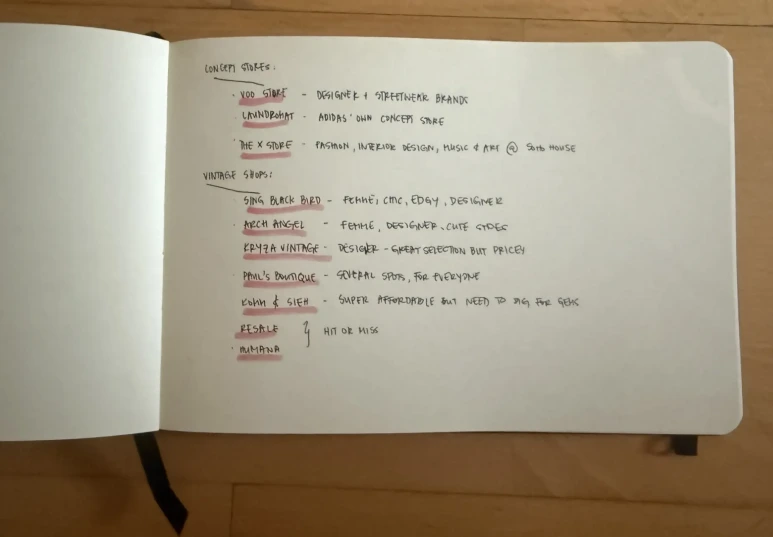 CONCEPT STORES:
· VOO STORE - DESIGNER + STREETWEAR BRANDS
· LAUNDROMAT - ADIDAS' OWN CONCEPT STORE
· THE X STORE - FASHION, INTERIOR DESIGN, MUSIC & ART @ SOHO HOUSE
VINTAGE SHOPS:
SING BLACK BIRD - FEMME, CHIC, EDGY, DESIGNER
· ARCH ANGEL - FEMME, DESIGNER, CUTE
KRYZA VINTAGE - DESIGNER - GREAT SELECTION BUT PRICEY
· PAUL'S BOUTIQUE - SEVERAL SPOTS, FOR EVERYONE
KOMM & SIEH - SUPER AFFORDABLE BUT NEED TO DIG FOR GEMS
· RESALE } HIT OR MISS
· HUMANA